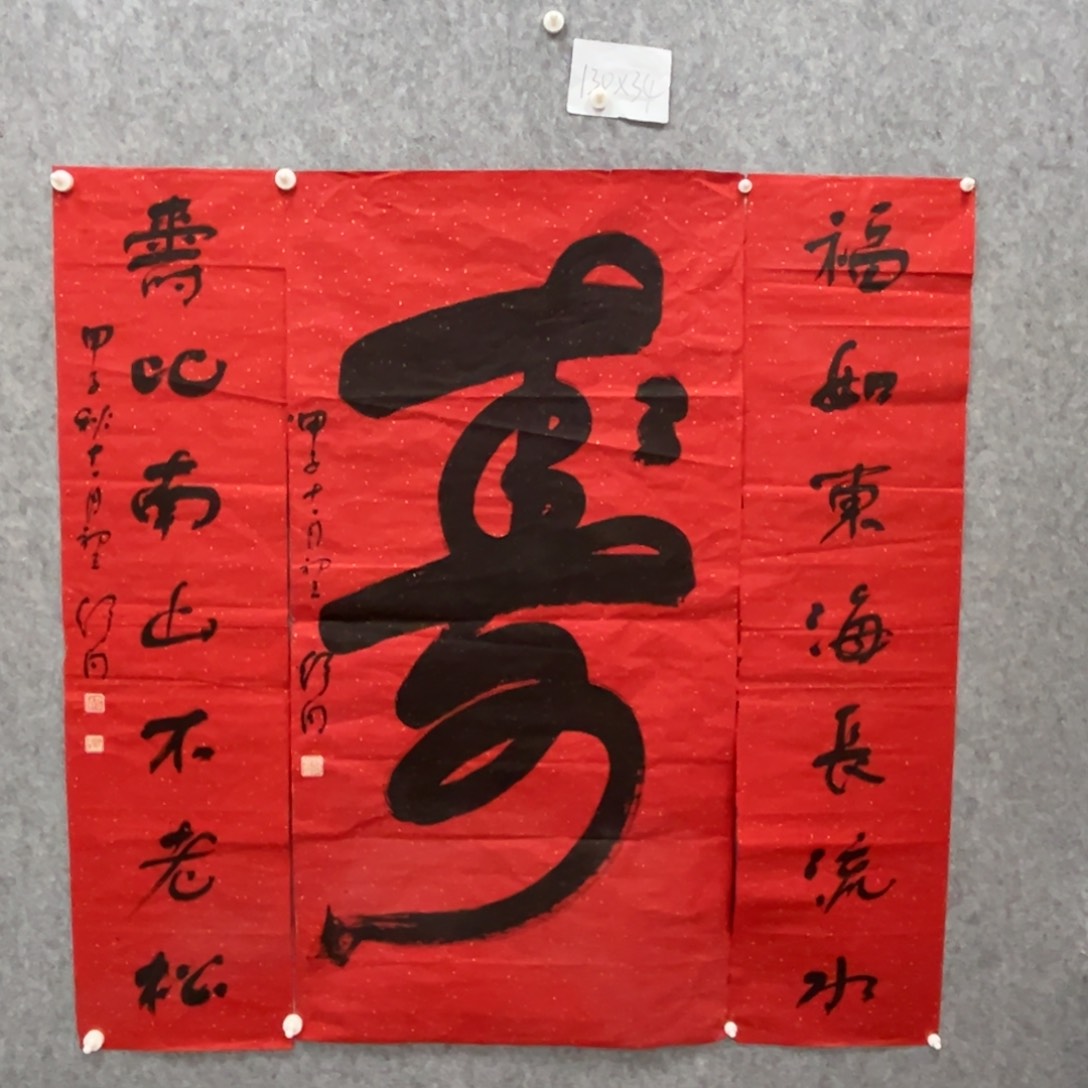 130×34
福如東海長流水
壽
甲子十一月初三 舒同
壽比南山不老松
甲子秋十一月初三 舒同